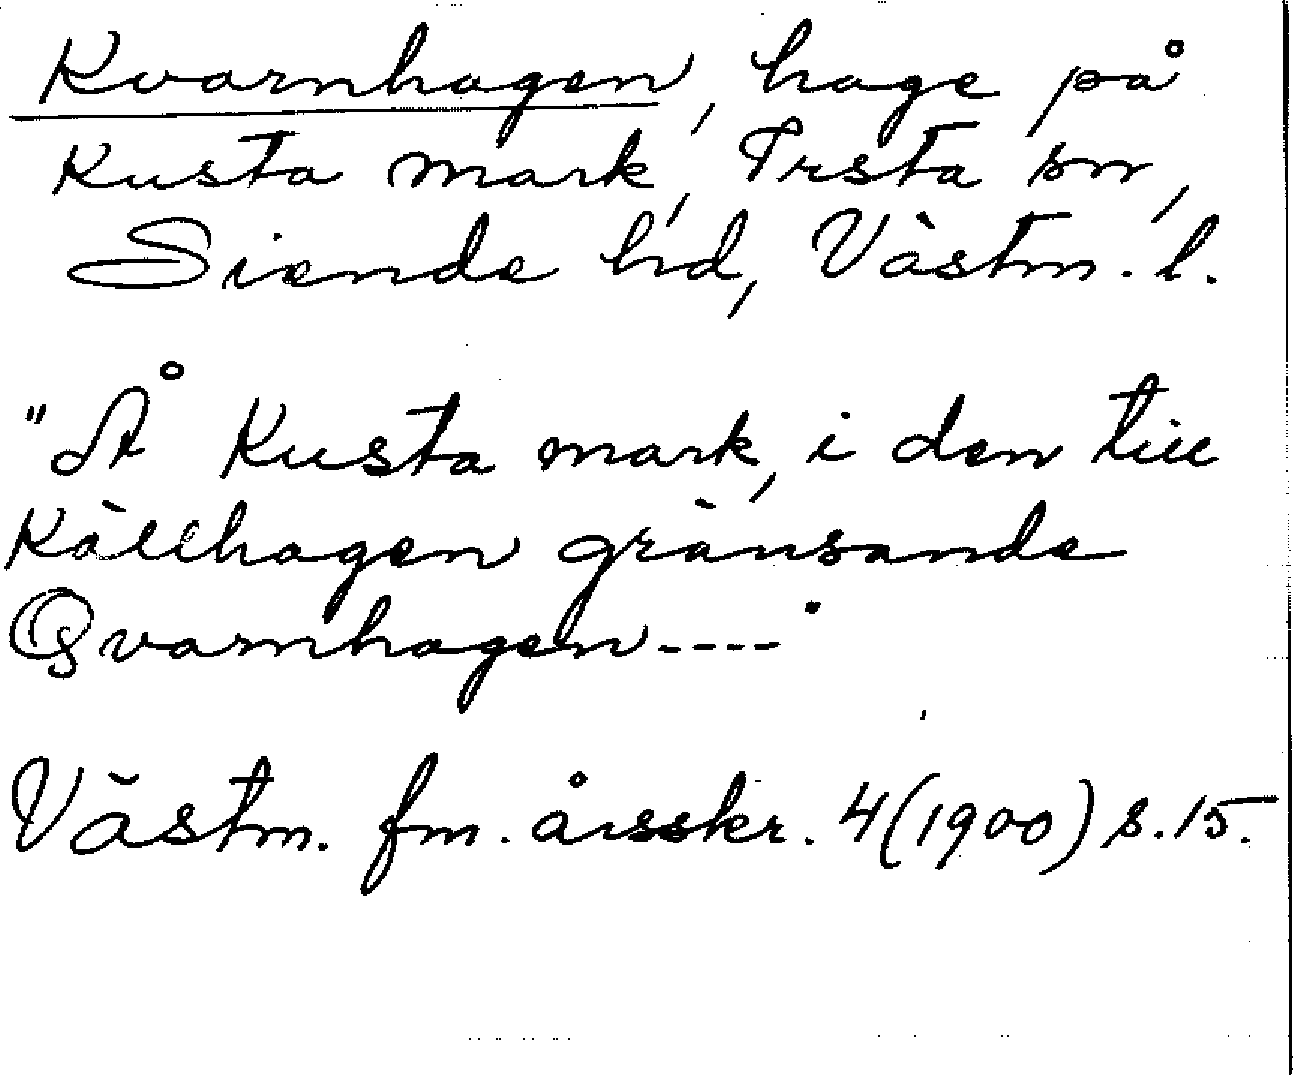 Kvarnhagen, hage på
Kusta mark, Irsta sn,
Siende hd, Västm. l.
"Å Kusta mark, i den till
Källhagen gränsande
Qvarnhagen----"
Västm. fm. årsskr. 4(1900) s. 15.